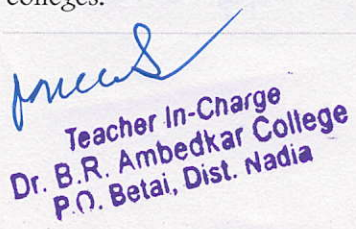 colleges.
Teacher In-Charge
Dr. B.R. Ambedkar College
P.O. Betai, Dist. Nadia